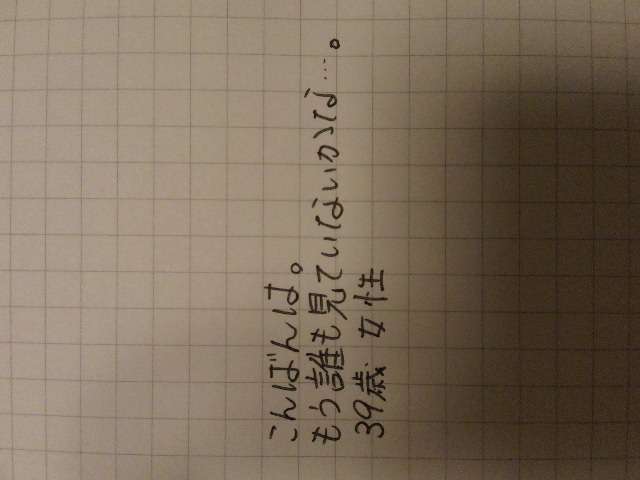 こんばんは。
もう誰も見ていないかな…。
39歳 女性